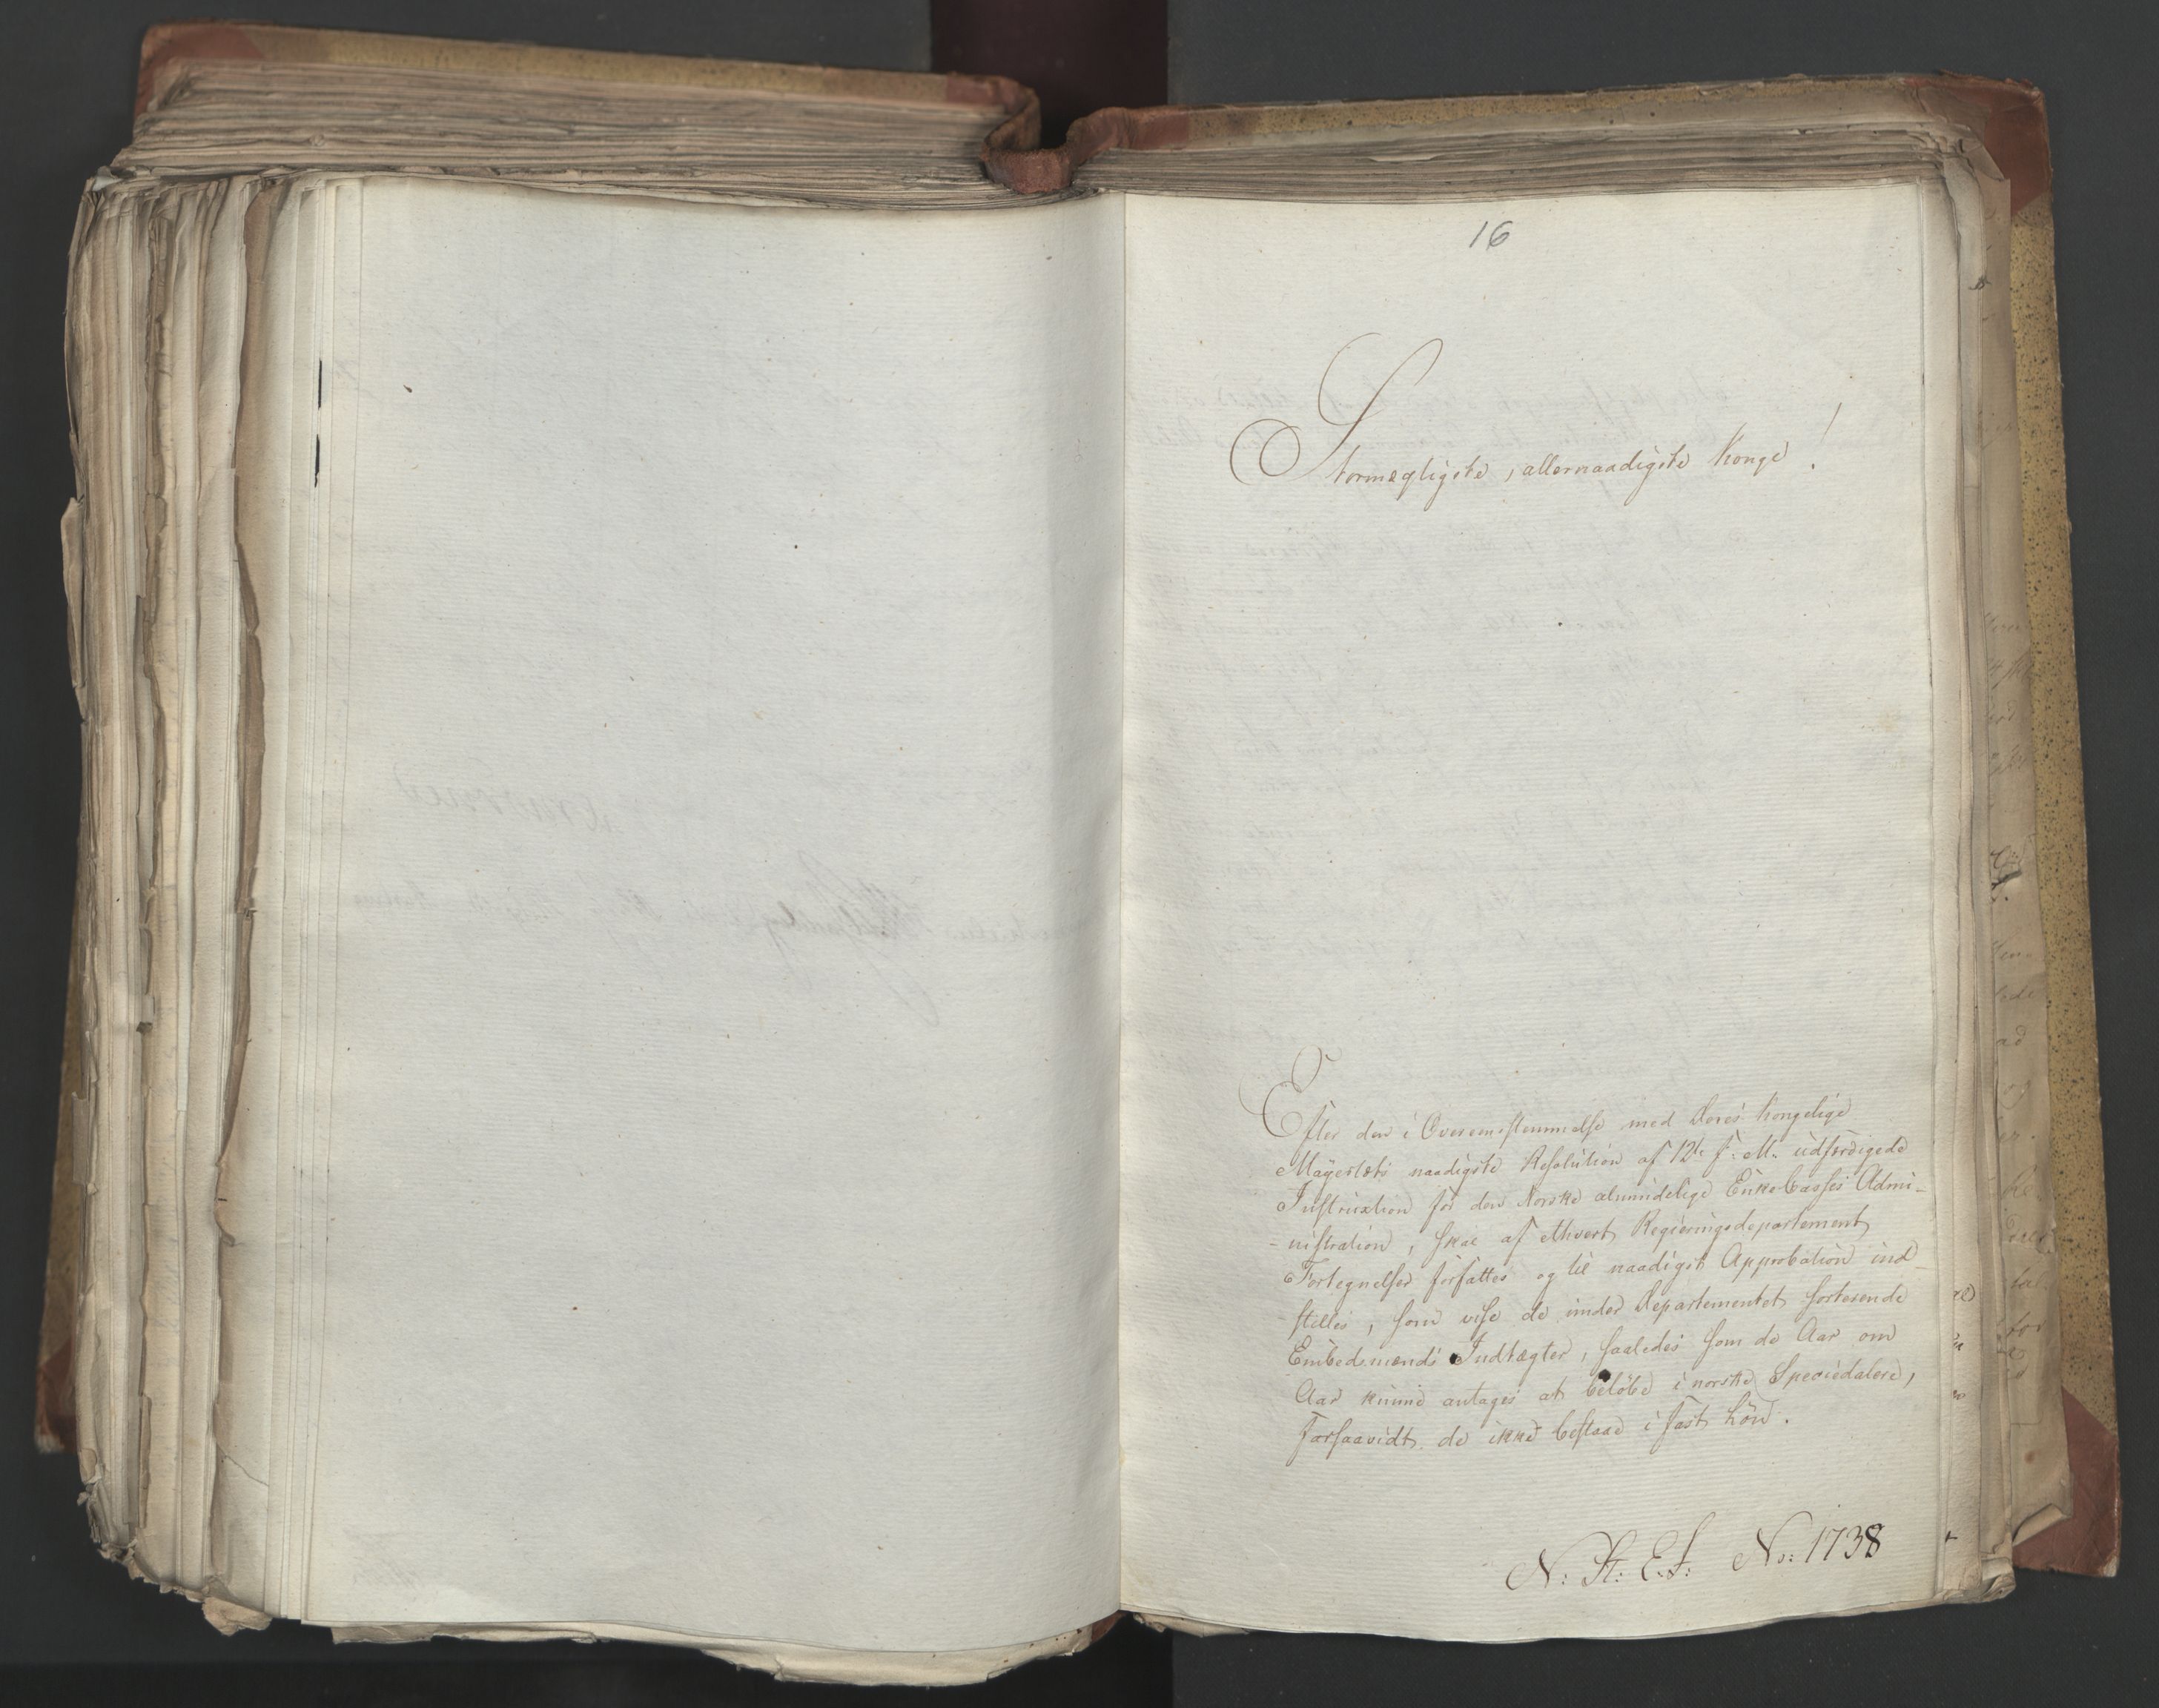 16
Stormægtigste, allernaadigste Konge!
Efter den i Overensstemmelse med Deres Kongelige
Mayestæts naadigste Resolution af 12te f: M: udfærdigede
Instruxtion for den Norske almindelige EnkeCasses Admi-
-nistration, skal af ethvert Regieringsdepartement
Fortegnelser forfattes og til naadigst Approbation ind-
-stilles, som vise de under Departementet sorterende
Embedsmænds Indtægter, saaledes som de Aar om
Aar kunne antages at beløbe i norske Speciedalere,
forsaavidt de ikke bestaae i fast Løn.
N: St: E.S: No: 1738